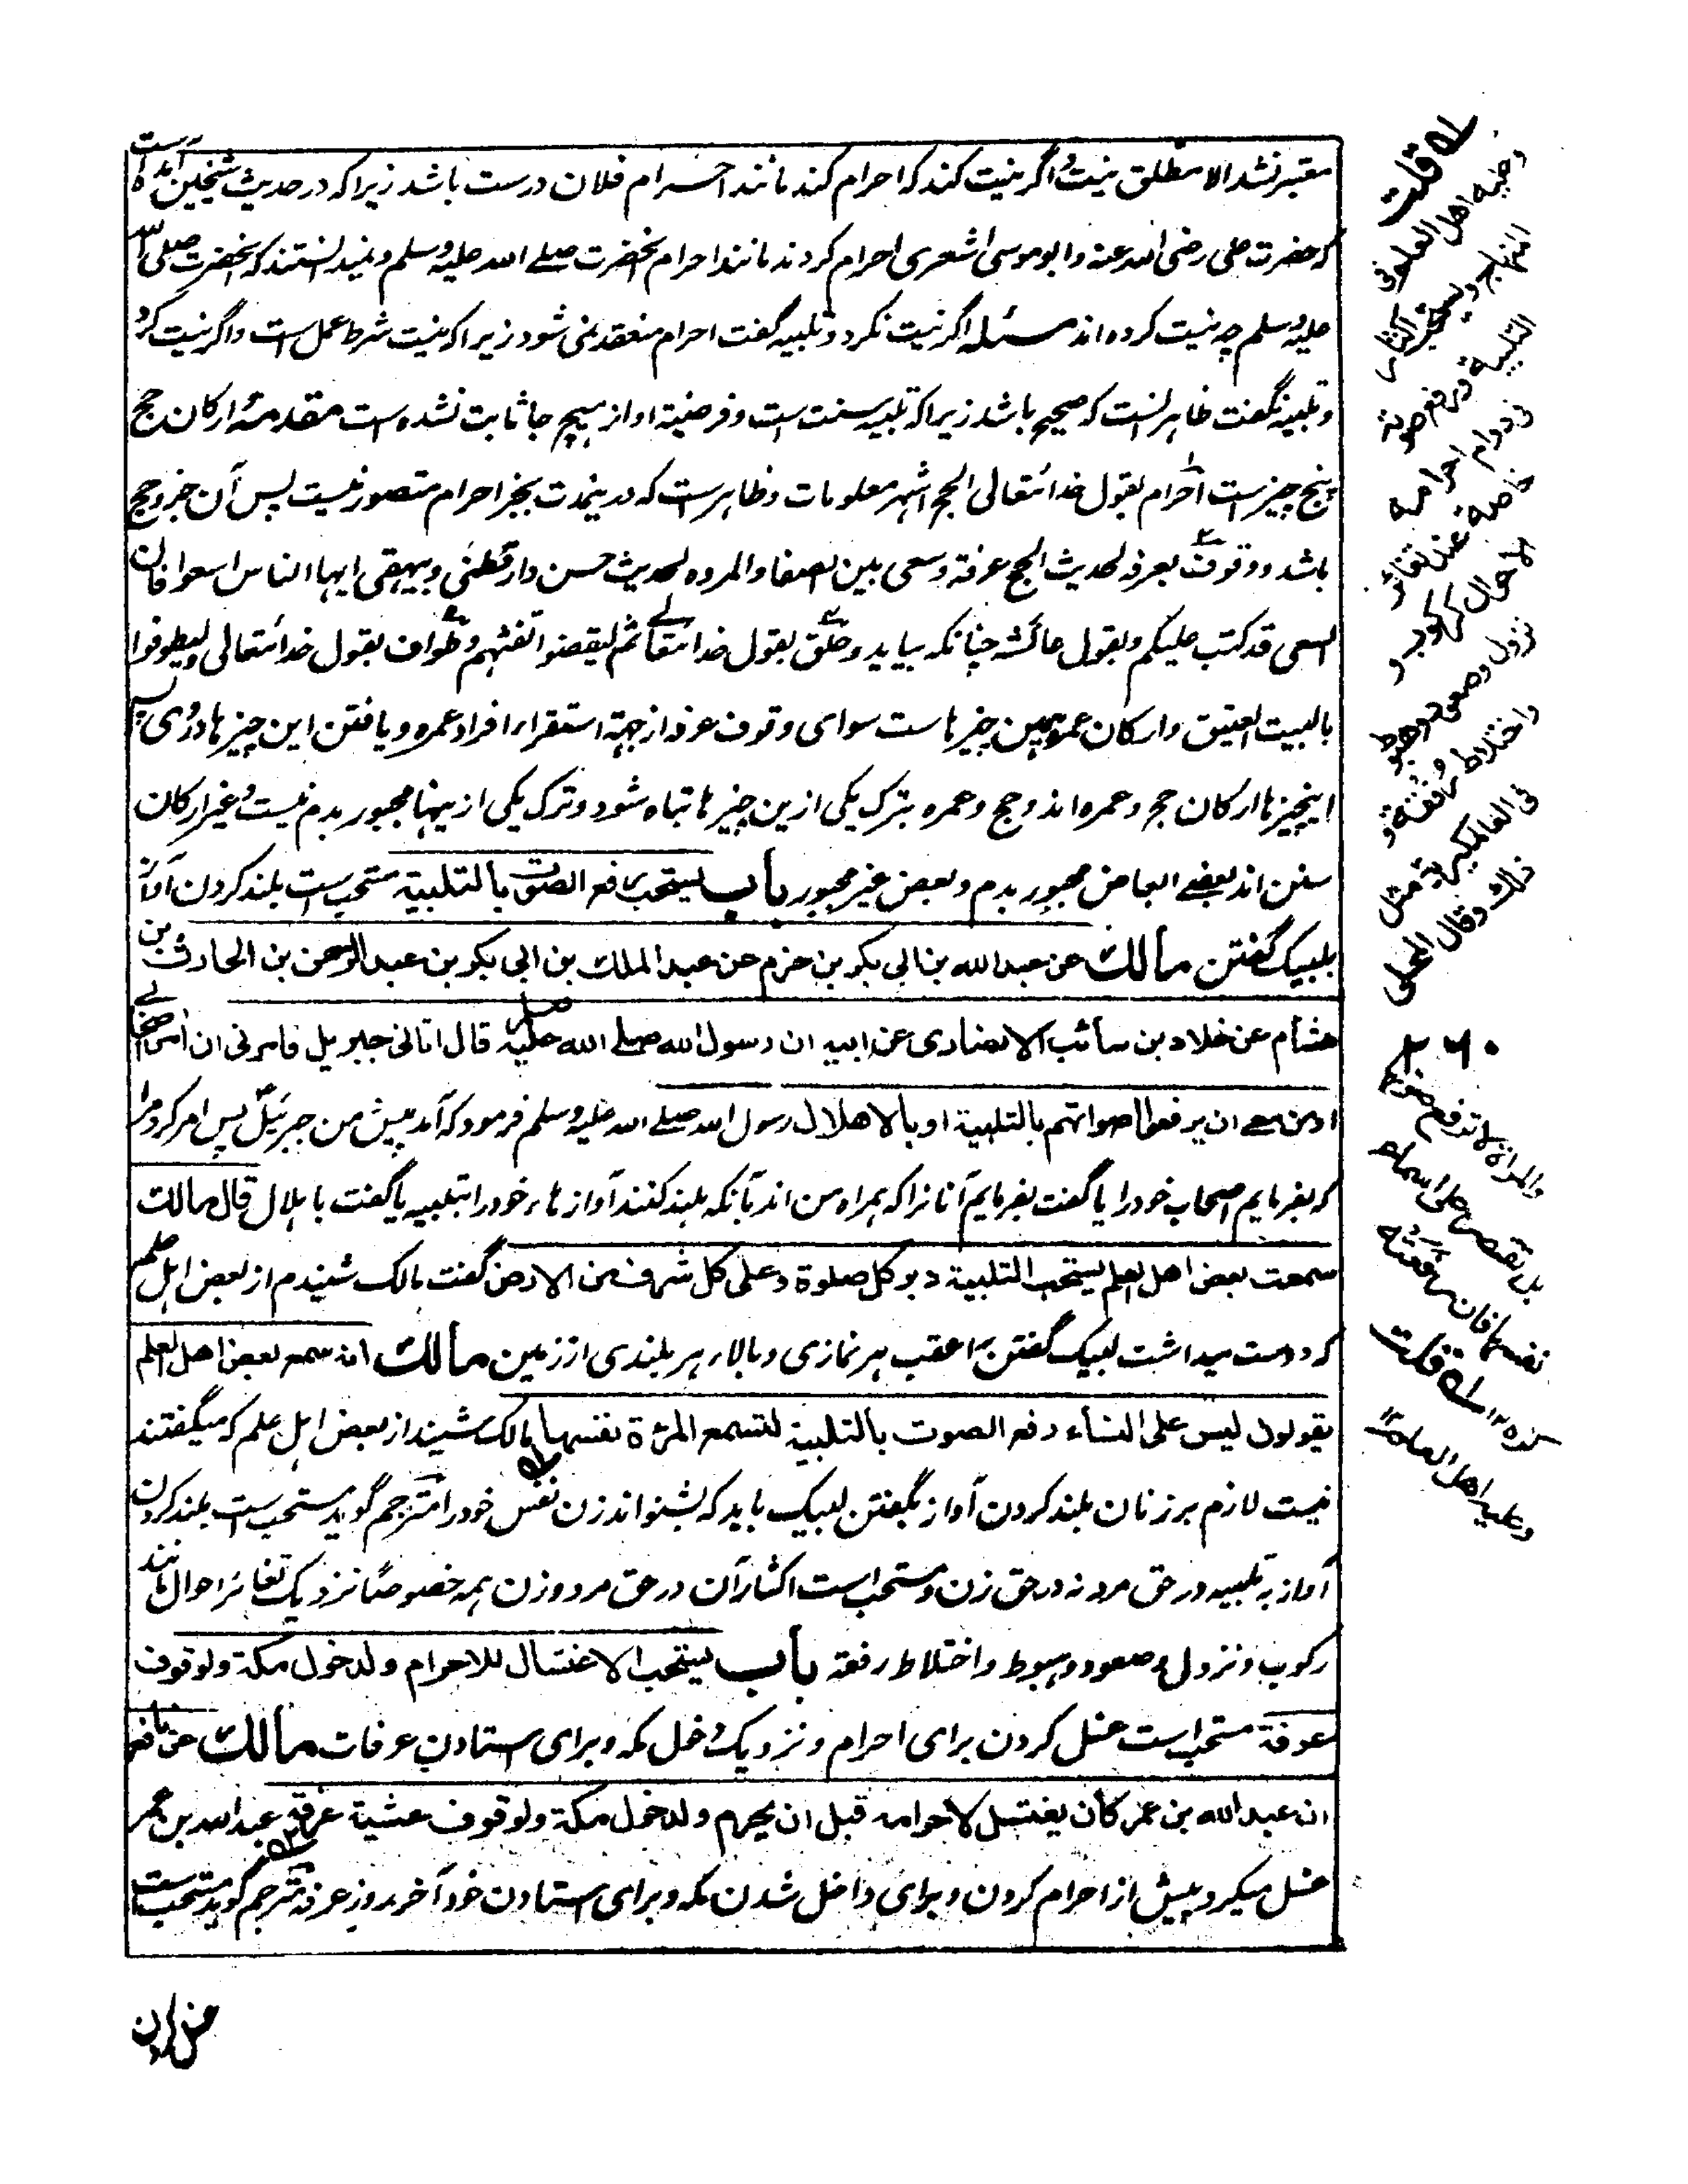 معتبر نشد الا مطلق نیت و اگر نیت کند که احرام کند مانند احرام فلان درست باشد زیرا که در حدیث شیخین آمده است
که حضرت علی رضی الله عنه و ابو موسی اشعری احرام کردند مانند احرام آنحضرت صلے الله علیه وسلم و نمیدانستند که آنحضرت صلی الله
علیه وسلم چه نیت کرده اند مسئله اگر نیت نکرد و تلبیه گفت احرام منعقد نمی شود زیرا که نیت شرط عمل است و اگر نیت کرد
و تلبیه نگفت ظاهر آنست که صحیح باشد زیرا که تلبیه سنت است و فرضیة او از هیچ جا ثابت نشده است مقدمه ارکان حج
پنج چیز است احرام بقول خدا تعالی الحج اشهر معلومات و ظاهر است که درینمدت بجز احرام متصور نیست پس آن جزو حج
باشد و وقوف بعرفه لحدیث الحج عرفة و سعی بین الصفا والمروه لحدیث حسن دارقطنی و بیهقی ایها الناس اسعوا فان
السعی قد کتب علیکم و بقول عائشه چنانکه بیاید و حلق بقول خدا تعالے ثم لیقضوا تفثهم و طواف بقول خدا تعالی ولیطوفوا
بالبیت العتیق و ارکان عمره همین چیزها ست سوای وقوف عرفه از جهة استقرار افراد عمره و یافتن این چیزها در وی پس
اینچیزها ارکان حج و عمره اند و حج و عمره بترک یکی ازین چیزها تباه شود و ترک یکی از ینها مجبور بدم نیست و غیر ارکان
سنن اند بعضے ابعاض مجبور بدم و بعض غیر مجبور باب یستحب رفع الصوت بالتلبیة مستحب است بلند کردن آواز
بلبیک گفتن مالك عن عبد الله بن ابی بکر بن حزم عن عبد الملك بن ابی بکر بن عبد الرحمن بن الحارث بن
هشام عن خلاد بن سائب الانصاری عن ابیه ان رسول الله صلے الله علیه وسلم قال اتانی جبریل فامرنی ان آمر اصحابے
او من معے ان یرفعوا اصواتهم بالتلبیة او بالاهلال رسول الله صلے الله علیه وسلم فرمود که آمد پیش من جبرئیل پس امر کرد مرا
که بفرمایم اصحاب خود را یا گفت بفرمایم آنانرا که همراه من اند بآنکه بلند کنند آوازهاء خود را بتلبیه یا گفت باهلال قال مالك
سمعت بعض اهل العلم یستحب التلبیة دبر کل صلوة و علی کل شرف من الارض گفت مالک شنیدم از بعض اهل علم
که دوست میداشت لبیک گفتن را عقب هر نمازی و بالاء هر بلندی از زمین مالك انه سمع بعض اهل العلم
یقولون لیس علی النساء رفع الصوت بالتلبیة لتسمع المرءة نفسها مالک شنید از بعض اهل علم که میگفتند
نیست لازم بر زنان بلند کردن آواز بگفتن لبیک باید که بشنواند زن نفس خود را مترجم گوید مستحب است بلند کردن
آواز به تلبیه در حق مرد نه در حق زن و مستحب است اکثار آن در حق مرد و زن همه خصوصًا نزدیک تغائر احوال مانند
رکوب و نزول و صعود و هبوط و اختلاط رفقه باب یستحب الاغتسال للاحرام ولدخول مکة ولوقوف
عرفة مستحب است غسل کردن برای احرام و نزدیک دخل مکه و برای استادن عرفات مالك عن نافع
ان عبد الله بن عمر کان یغتسل لاحرامه قبل ان یحرم ولدخول مکة ولوقوف عشیة عرفة عبد الله بن عمر
غسل میکرد پیش از احرام کردن و برای داخل شدن مکه و برای استادن خود آخر روز عرفه مترجم گوید مستحب است
غسل کردن
له قلت
وعلیه اهل العلم وفی
المنهاج ویستحب اکثار
التلبیة ورفع صوته
فی دوام احرامه
خاصة عند تغائر
الاحوال کرکوب و
نزول وصعود وهبوط
واختلاط رفقة و
فی العالمکیریة مثل
ذلك وقال المحلی
۲۶۰
والمرأة لا ترفع صوتها
بل تقتصر علی اسماع
نفسها فان رفعته
کره ۱۲ سله قلت
وعلیه اهل العلم ۱۲